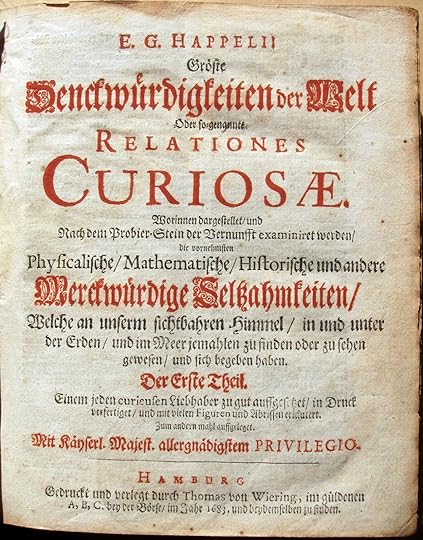 E. G. HAPPELII
Gröste
Denckwürdigkeiten der Welt
Oder so-genannte
RELATIONES
CURIOSÆ.
Worinnen dargestellet/ und
Nach dem Probier-Stein der Vernunfft examiniret werden/
die vornehmsten
Physicalische/ Mathematische/ Historische und andere
Merckwürdige Seltzahmkeiten/
Welche an unserm sichtbahren Himmel/ in und unter
der Erden/ und im Meer jemahlen zu finden oder zu sehen
gewesen/ und sich begeben haben.
Der Erste Theil.
Einem jeden curieusen Liebhaber zu gut auffgesetzet/ in Druck
verfertiget/ und mit vielen Figuren und Abrissen erläutert.
Zum andern mahl auffgeleget.
Mit Käyserl. Majest. allergnädigstem PRIVILEGIO.
HAMBURG
Gedruckt und verlegt durch Thomas von Wiering, im güldenen
A, B, C. bey der Börse/ im Jahr 1683. und bey demselben zu finden.